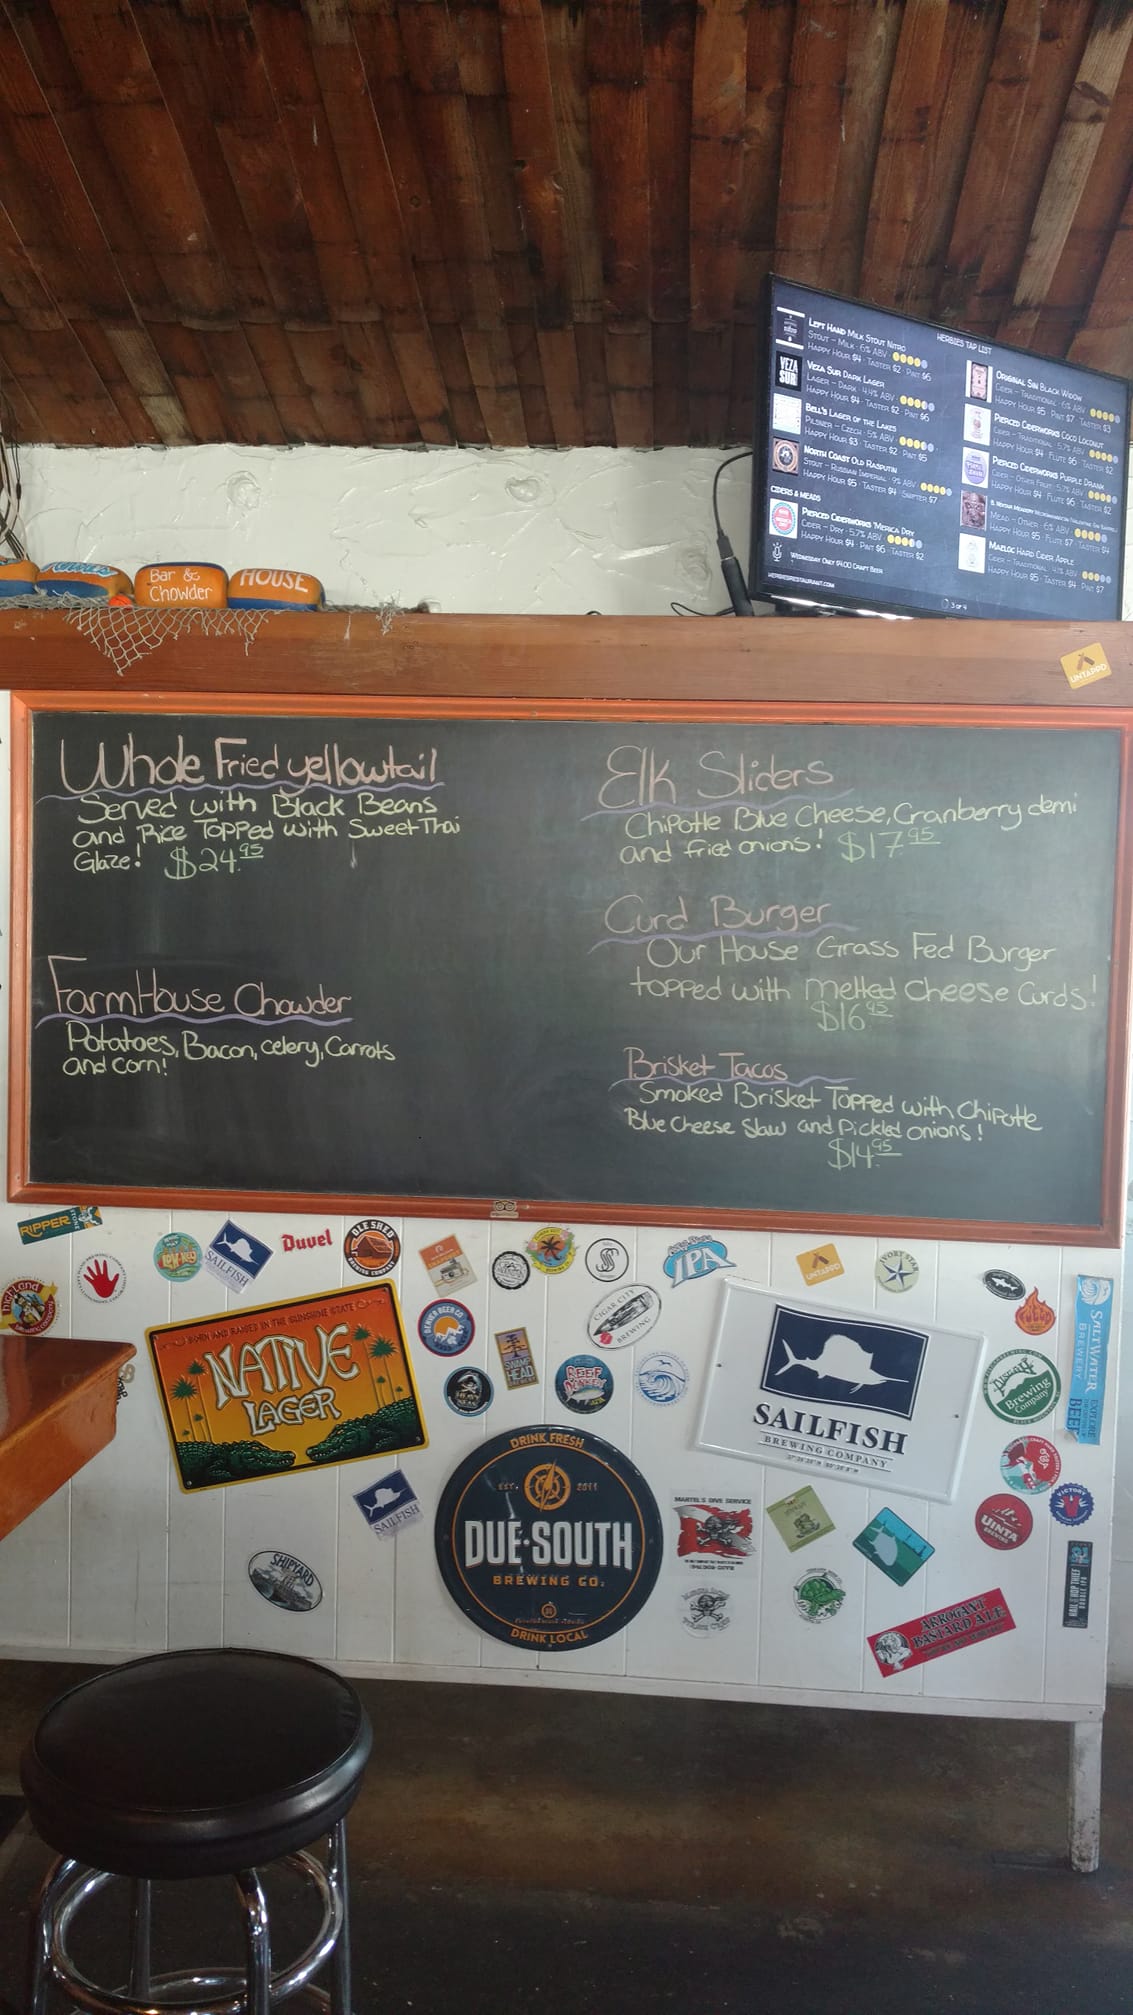 HERBIES TAP LIST
LEFT HAND MILK STOUT NITRO
STOUT - MILK · 6% ABV
HAPPY HOUR $4 · TASTER $2 · PINT $6
VEZA SUR
VEZA SUR DARK LAGER
LAGER - DARK · 4.4% ABV
HAPPY HOUR $4 · TASTER $2 · PINT $6
BELL'S LAGER OF THE LAKES
PILSNER - CZECH · 5% ABV
HAPPY HOUR $3 · TASTER $2 · PINT $5
NORTH COAST OLD RASPUTIN
STOUT - RUSSIAN IMPERIAL · 9% ABV
HAPPY HOUR $5 · TASTER $4 · SNIFTER $7
CIDERS & MEADS
PIERCED CIDERWORKS 'MERICA DRY
CIDER - DRY · 5.7% ABV
HAPPY HOUR $4 · PINT $6 · TASTER $2
WEDNESDAY ONLY $4.00 CRAFT BEER
HERBIESRESTAURANT.COM
ORIGINAL SIN BLACK WIDOW
CIDER - TRADITIONAL · 6% ABV
HAPPY HOUR $5 · PINT $7 · TASTER $3
PIERCED CIDERWORKS COCO LOCONUT
CIDER - TRADITIONAL · 5.7% ABV
HAPPY HOUR $4 · FLUTE $6 · TASTER $2
PIERCED CIDERWORKS PURPLE DRANK
CIDER - OTHER FRUIT · 5.7% ABV
HAPPY HOUR $4 · FLUTE $6 · TASTER $2
MEAD - OTHER · 6% ABV
HAPPY HOUR $5 · FLUTE $7 · TASTER $4
MAELOC HARD CIDER APPLE
CIDER - TRADITIONAL · 4.1% ABV
HAPPY HOUR $5 · TASTER $4 · PINT $7
3 OF 4
Bar &
Chowder
HOUSE
UNTAPPD
Whole Fried yellowtail
Served with Black Beans
and Rice Topped with Sweet Thai
Glaze! $24.95
FarmHouse Chowder
Potatoes, Bacon, celery, Carrots
and corn!
Elk Sliders
Chipotle Blue Cheese, Cranberry demi
and fried onions! $17.95
Curd Burger
Our House Grass Fed Burger
topped with melted Cheese Curds!
$16.95
Brisket Tacos
Smoked Brisket Topped with Chipotle
Blue Cheese Slaw and Pickled onions!
$14.95
RIPPER
LOW-KEY
SAILFISH
Duvel
OLE SHED
BREWING COMPANY
IPA
UNTAPPD
IVORY STAR
HIGHLAND
BORN AND RAISED IN THE SUNSHINE STATE
NATIVE
LAGER
DENVER BEER CO
SWAMP
HEAD
REEF
DONKEY
CIGAR CITY
BREWING
SAILFISH
BREWING COMPANY
Pisgah
Brewing
Company
SALTWATER
BREWERY
SAILFISH
SHIPYARD
DRINK FRESH
EST. 2011
DUE·SOUTH
BREWING CO.
DRINK LOCAL
MARTEL'S DIVE SERVICE
UINTA
BREWING
VICTORY
HAIL THE HOP THIEF
DOUBLE IPA
ARROGANT
BASTARD ALE